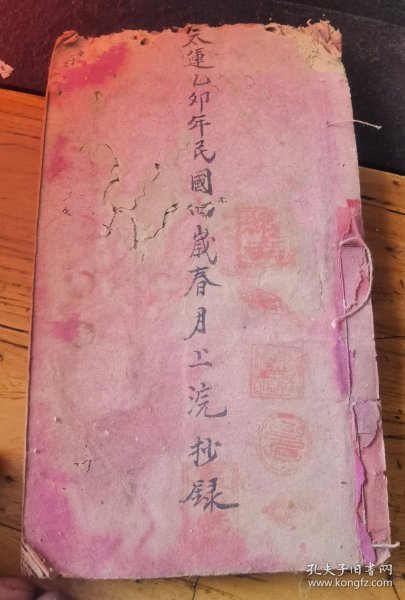 天運乙卯年民國四歲春月上浣抄錄
孔夫子旧书网
www.kongfz.com